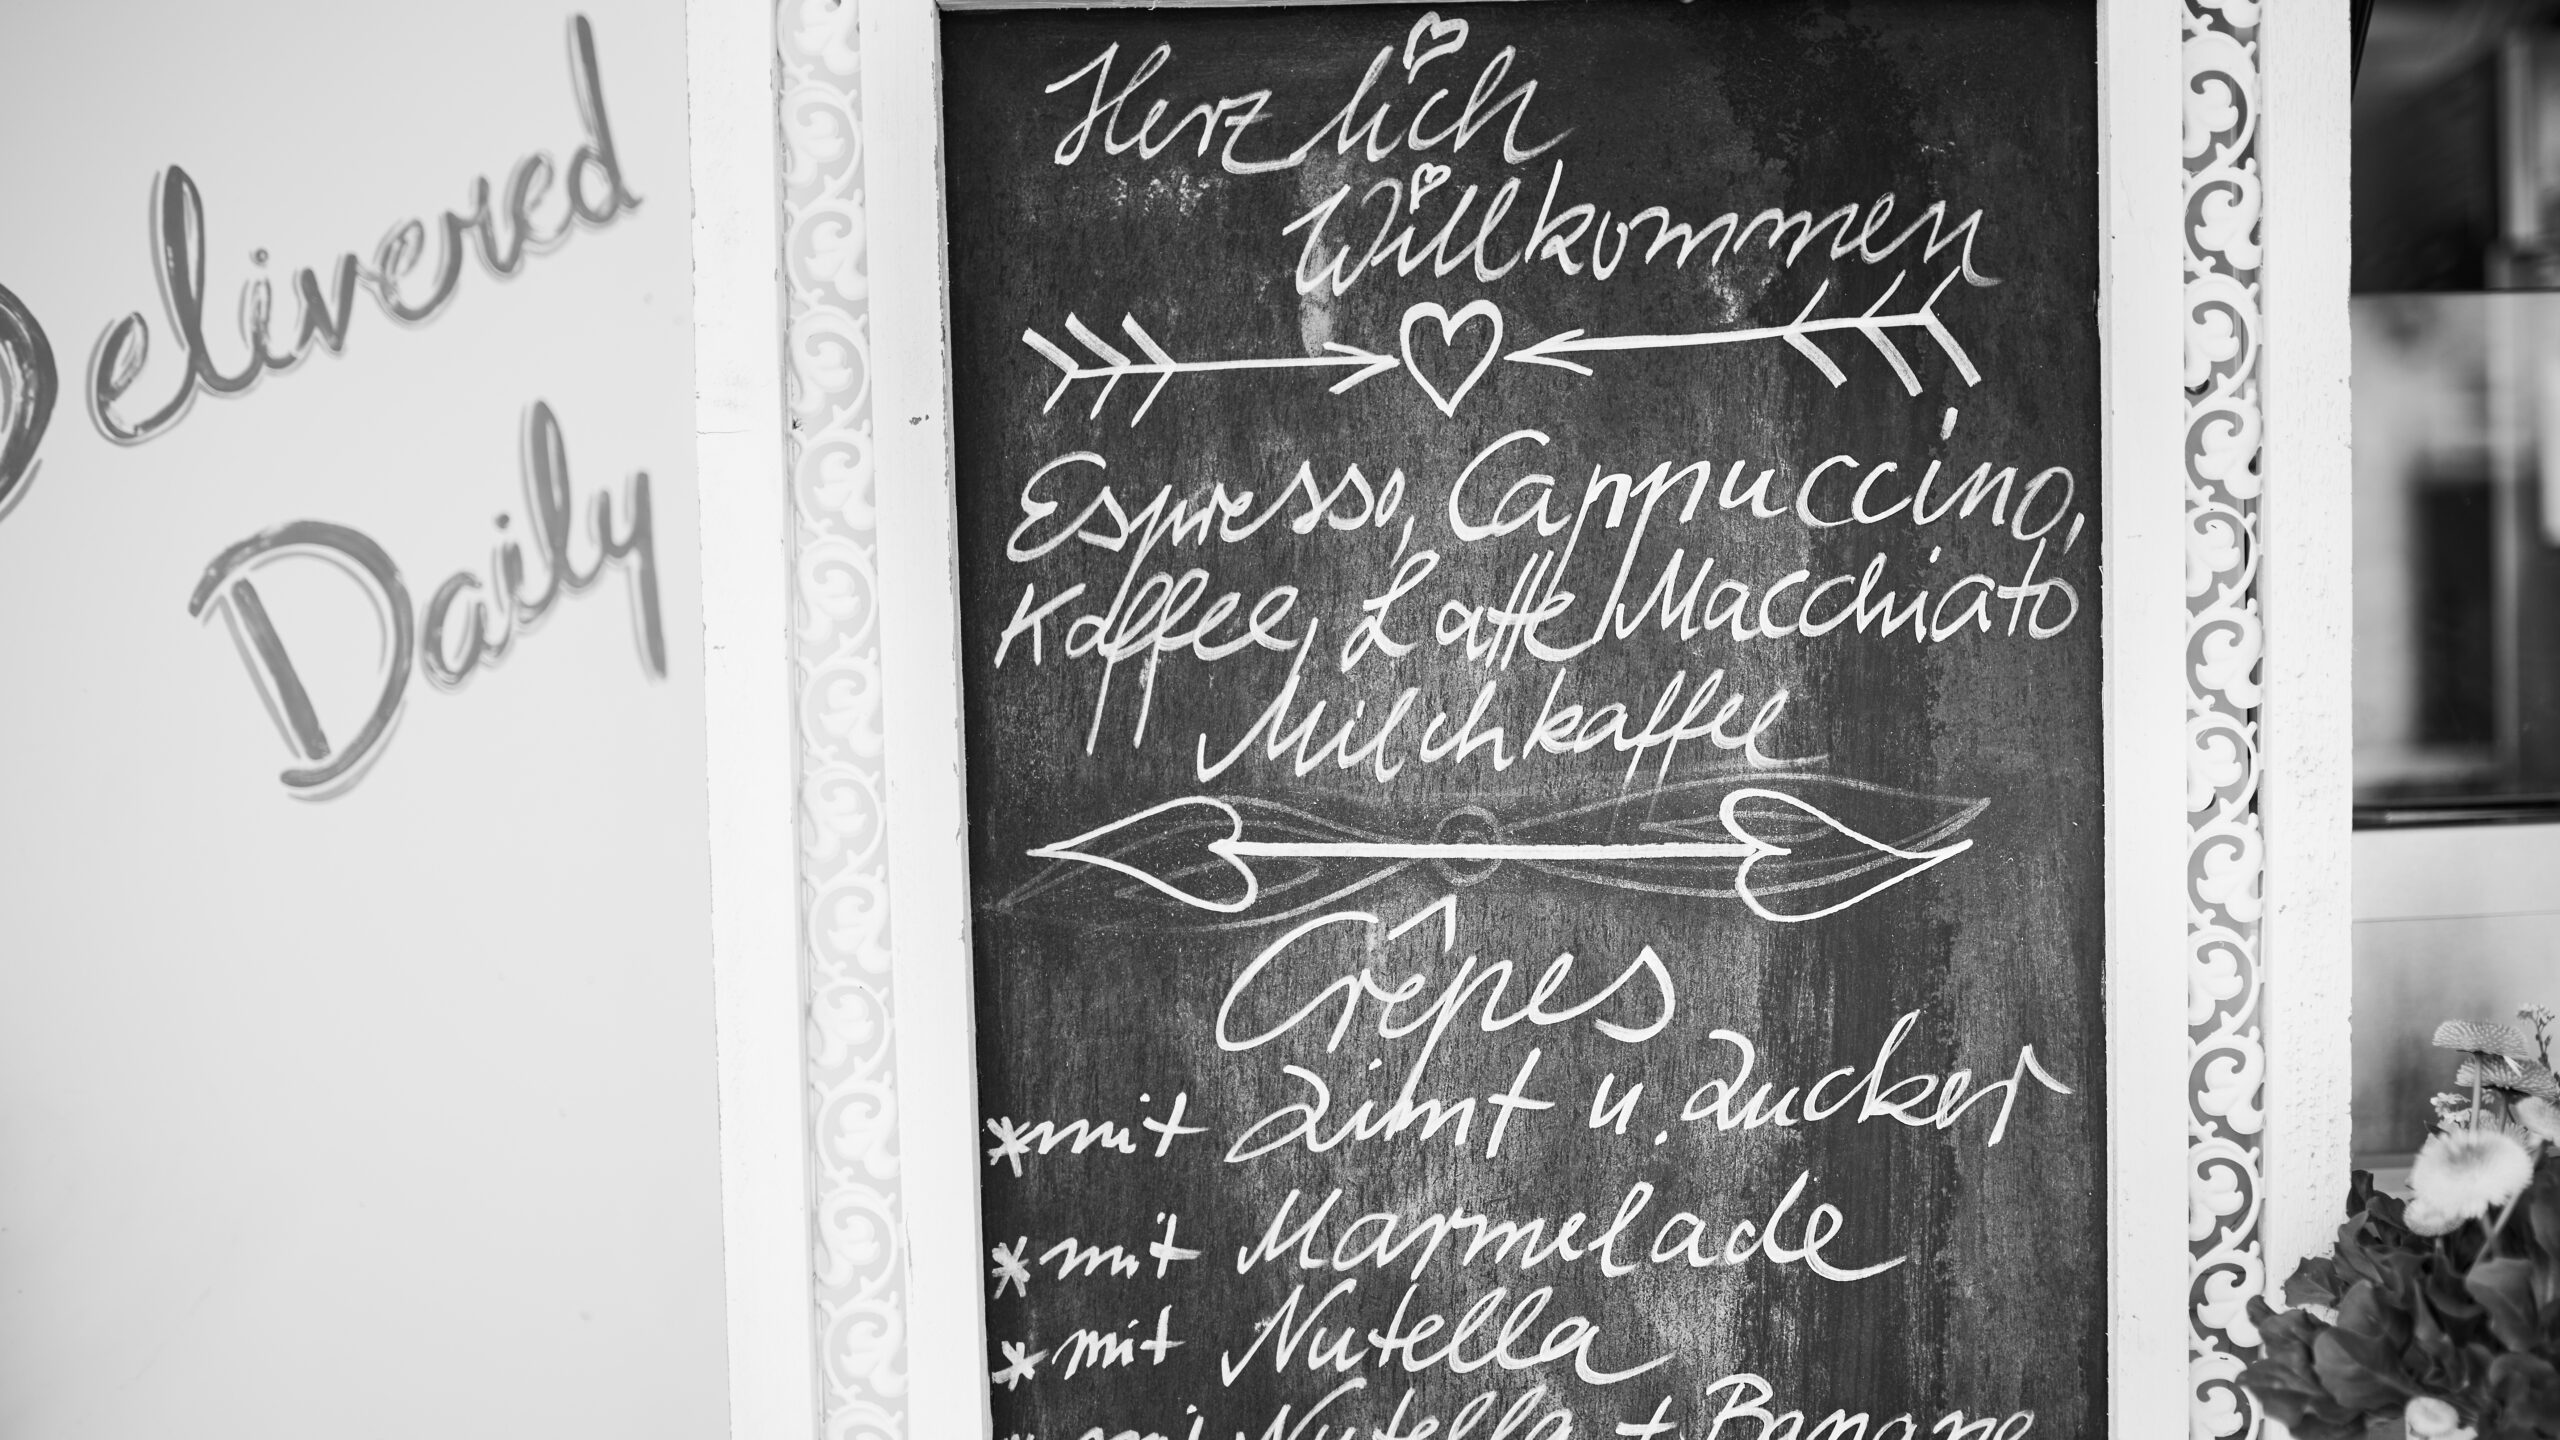 Delivered
Daily
Herzlich
Willkommen
Espresso, Cappuccino,
Kaffee, Latte Macchiato
Milchkaffee
Crêpes
*mit Zimt u. Zucker
*mit Marmelade
*mit Nutella
*mit Nutella + Banane